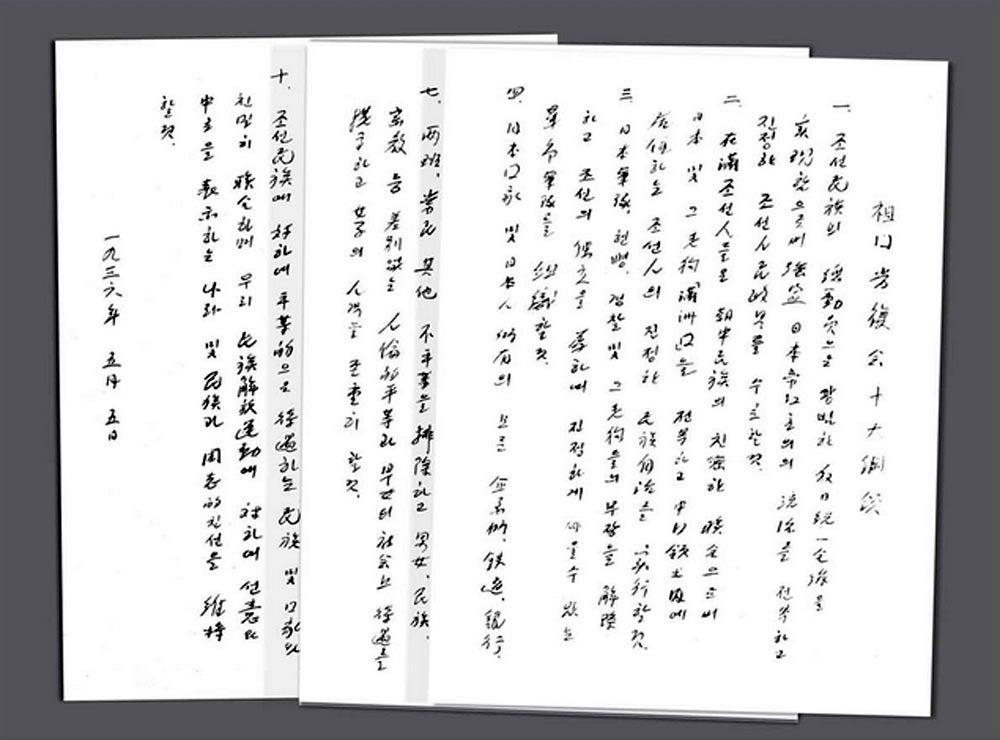 祖国光復会十大綱領
一、조선民族의 総動員으로 광범한 反日統一全線을
実現함으로써 強盗日本帝国主의의 統治를 전복하고
진정한 조선人民政부를 수立할것.
二、在満조선人들은 朝中民族의 친密한 聯合으로써
日本 및 그 走狗満洲国을 전복하고 中国領土内에
居住하는 조선人의 진정한 民族自治를 実行할것.
三、日本軍隊、헌병、경찰 및 그 走狗들의 무장을 解除
하고 조선의 独立을 為하여 진정하게 싸울수 있는
革命軍隊를 組織할것.
四、日本国家 및 日本人所有의 모든 企業所、鉄道、銀行、
七、両班、常民 其他 不平等을 排除하고 男女、民族、
宗教 등 差別없는 人倫的平等과 부女의 社会上 待遇를
提高하고 女子의 人格을 존重히 할것.
十、조선民族에 対하여 平等的으로 待遇하는 民族 및 国家와
친밀히 聯合하며 우리 民族解放運動에 対하여 선意와
中立을 表示하는 나라 및 民族과 同志的친선을 維持
할것.
一九三六年 五月 五日